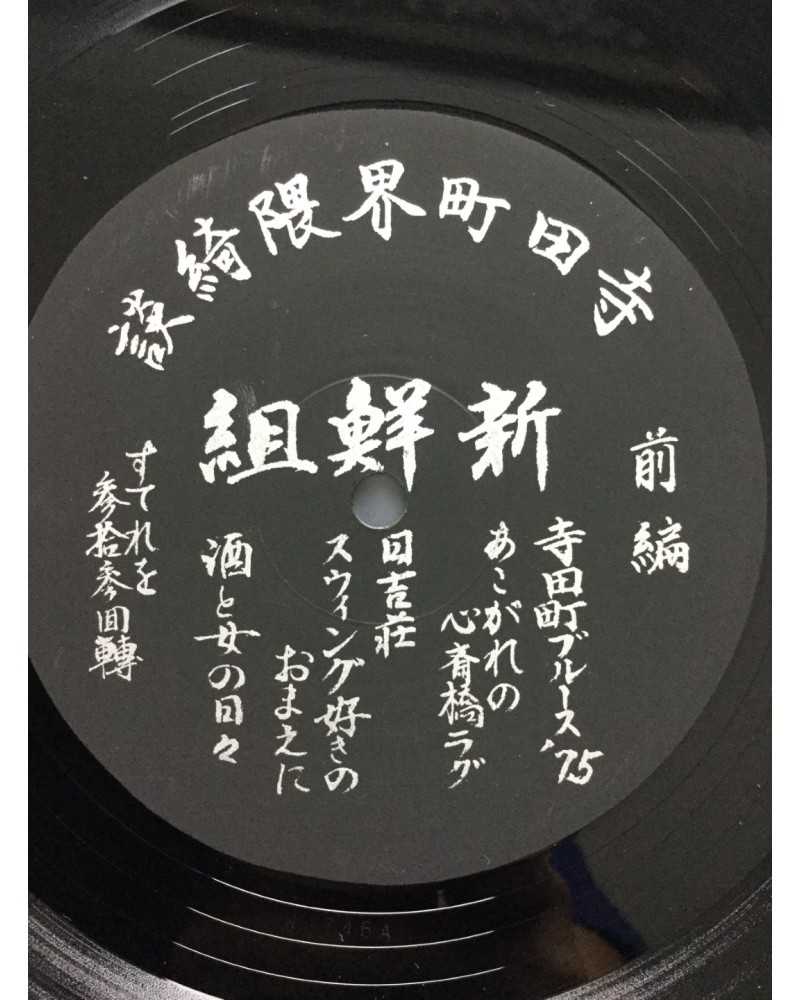 寺田町界隈綺談
新鮮組
前編
寺田町ブルース'75
あこがれの
心斎橋ラグ
日吉荘
スウィング好きの
おまえに
酒と女の日々
すてれを
参拾参回轉